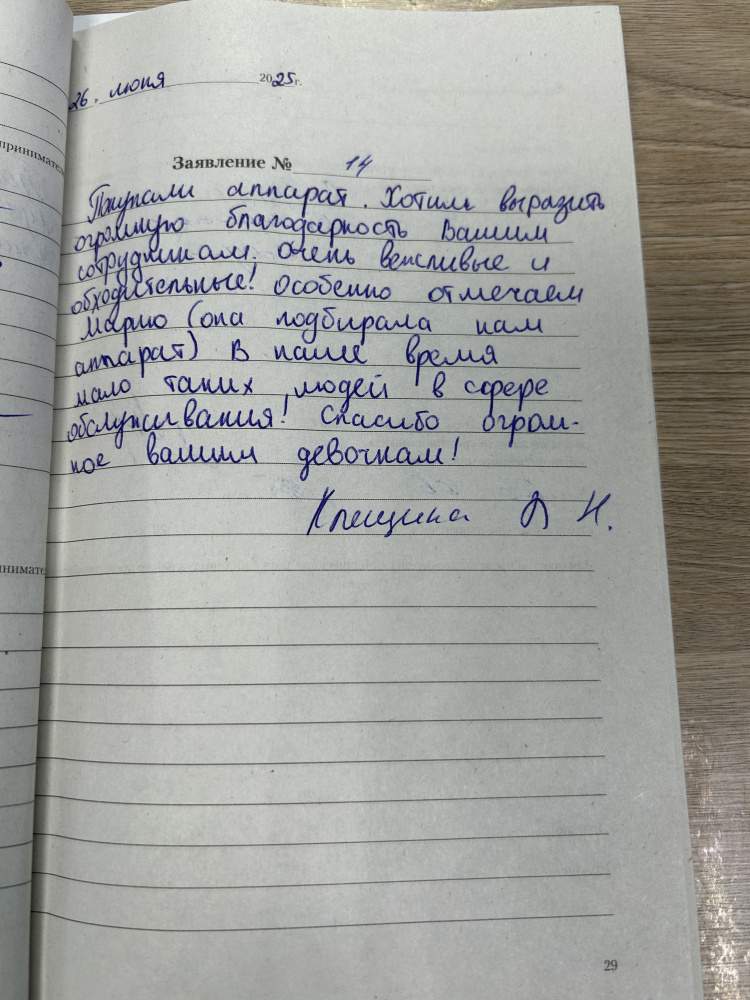 26. июня 2025г.
Заявление № 14
Покупали аппарат. Хотим выразить
огромную благодарность Вашим
сотрудникам. Очень вежливые и
обходительные! Особенно отмечаем
Марию (она подбирала нам
аппарат) В наше время
мало таких людей в сфере
обслуживания! Спасибо огром-
ное вашим девочкам!
Клещина Н.
29